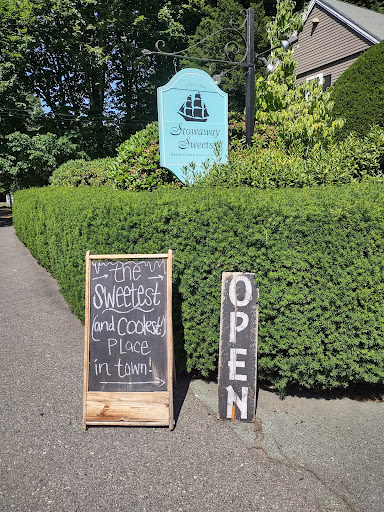 Stowaway
Sweets
the
Sweetest
(and Coolest)
Place
in town!
OPEN